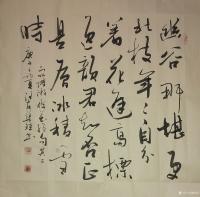 幽谷那堪更
北枝年々自分
著花遲高標
逸韻君知否正
是層冰積雪
時